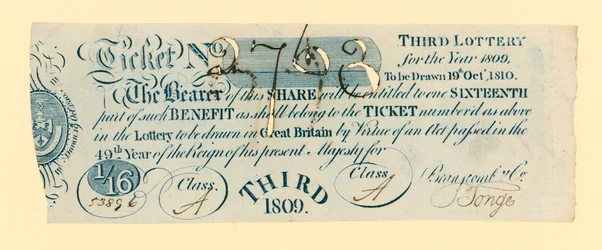 Ticket No. 3793
THIRD LOTTERY
for the Year 1809,
To be Drawn 19th Octr, 1810.
The Bearer of this SHARE will be entitled to one SIXTEENTH
part of such BENEFIT as shall belong to the TICKET number'd as above
in the Lottery to be drawn in Great Britain by Virtue of an Act passed in the
49th Year of the Reign of his present Majesty for
1/16
Class.
A
THIRD
1809.
Class.
A
Branscomb & Co.